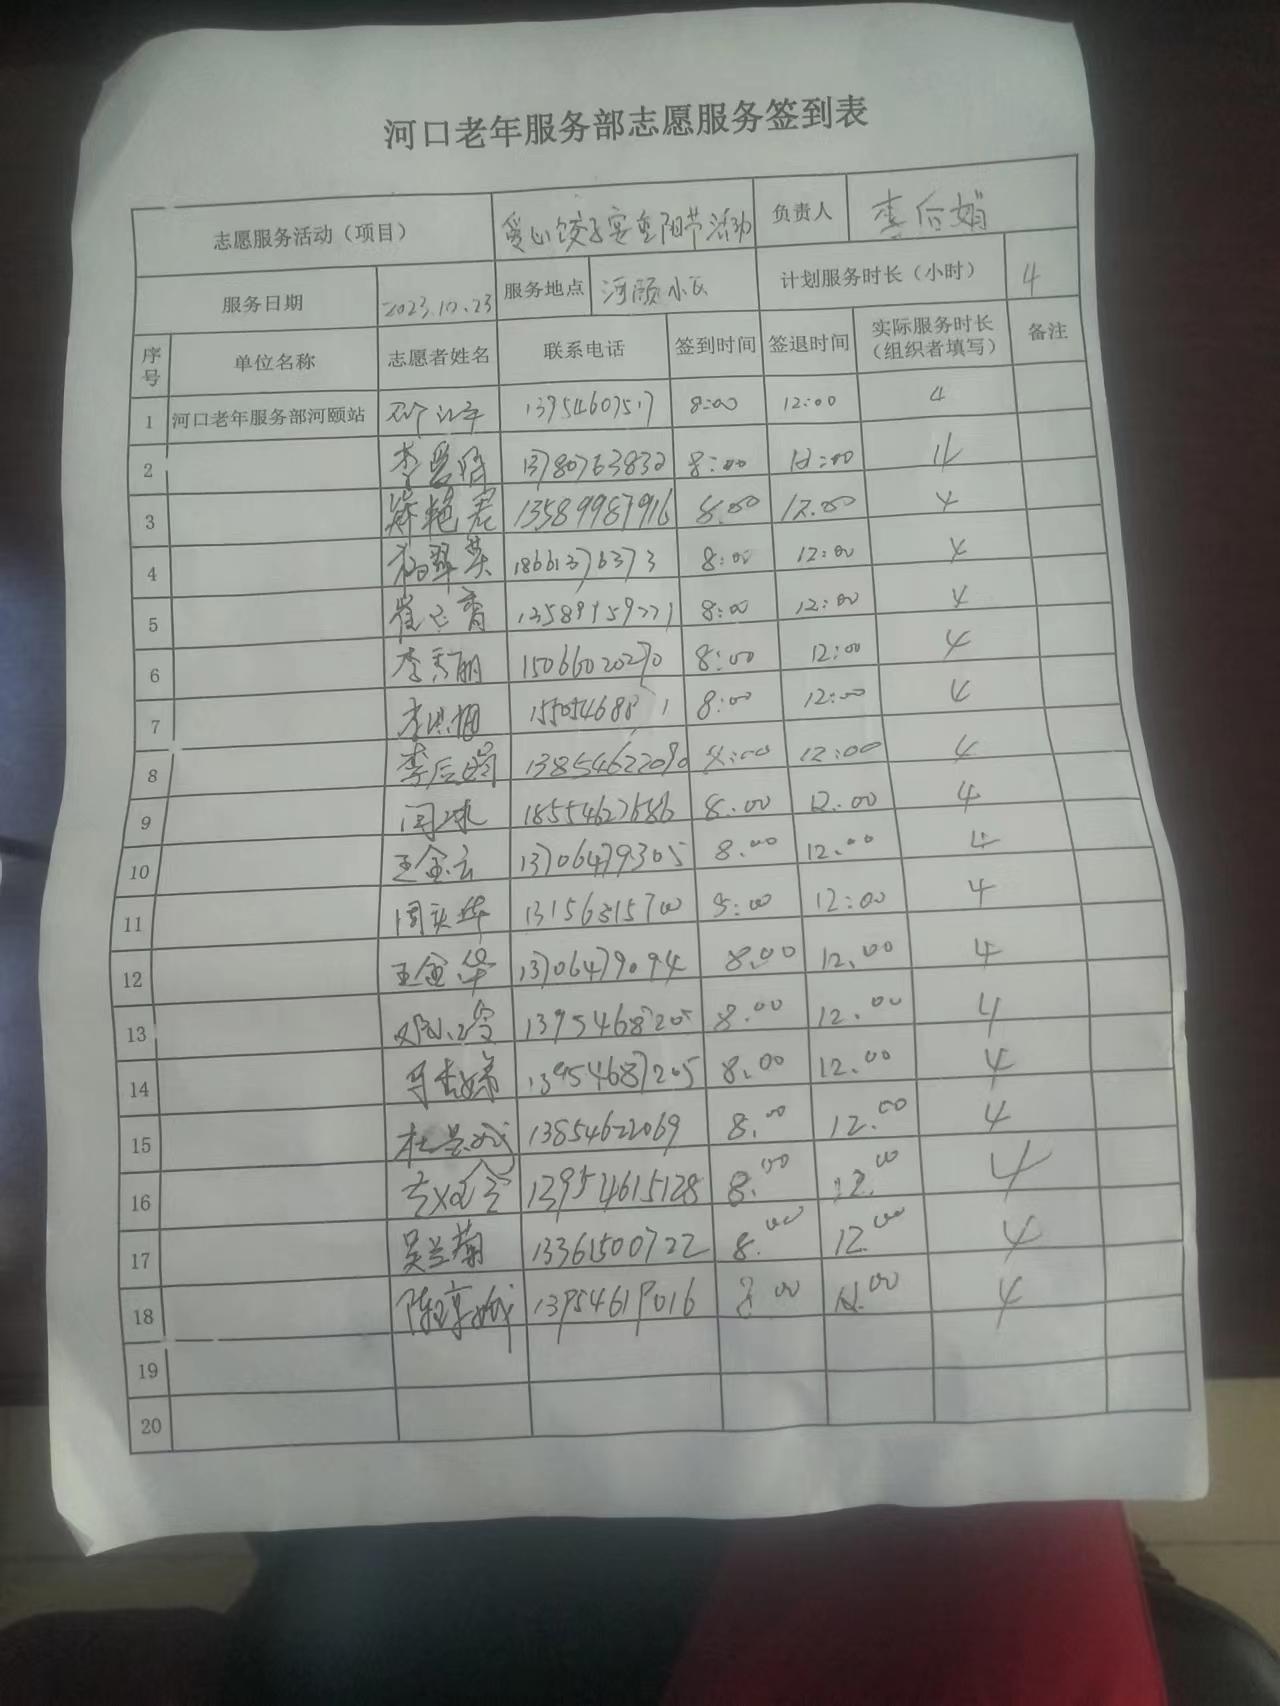 河口老年服务部志愿服务签到表
志愿服务活动（项目） 爱心饺子宴重阳节活动 负责人 李后娟
服务日期 2023.10.23 服务地点 河颐小区 计划服务时长（小时） 4
序号 单位名称 志愿者姓名 联系电话 签到时间 签退时间 实际服务时长（组织者填写） 备注
1 河口老年服务部河颐站 13954607517 8:00 12:00 4
2 李爱 13780763832 8:00 12:00 4
3 艳 13589987916 8:00 12.00 4
4 杨翠英 18661376373 8:00 12:00 4
5 崔 香 13589959771 8:00 12:00 4
6 李秀丽 15066020270 8:00 12:00 4
7 李洪梅 8:00 12:00 4
8 李后娟 13854622090 12:00 4
9 闫 18554627686 8:00 12.00 4
10 王金云 13706479305 8.00 12.00 4
11 周 华 13156815700 12:00 4
12 王金华 13706479094 8.00 12.00 4
13 13954687205 8.00 12.00 4
14 13954687205 8.00 12.00 4
15 杜景 13854622069 8.00 12.00 4
16 13954615128 8.00 12.00 4
17 吴兰菊 13361500722 8.00 12.00 4
18 陈 13954619016 8.00 12.00 4
19
20